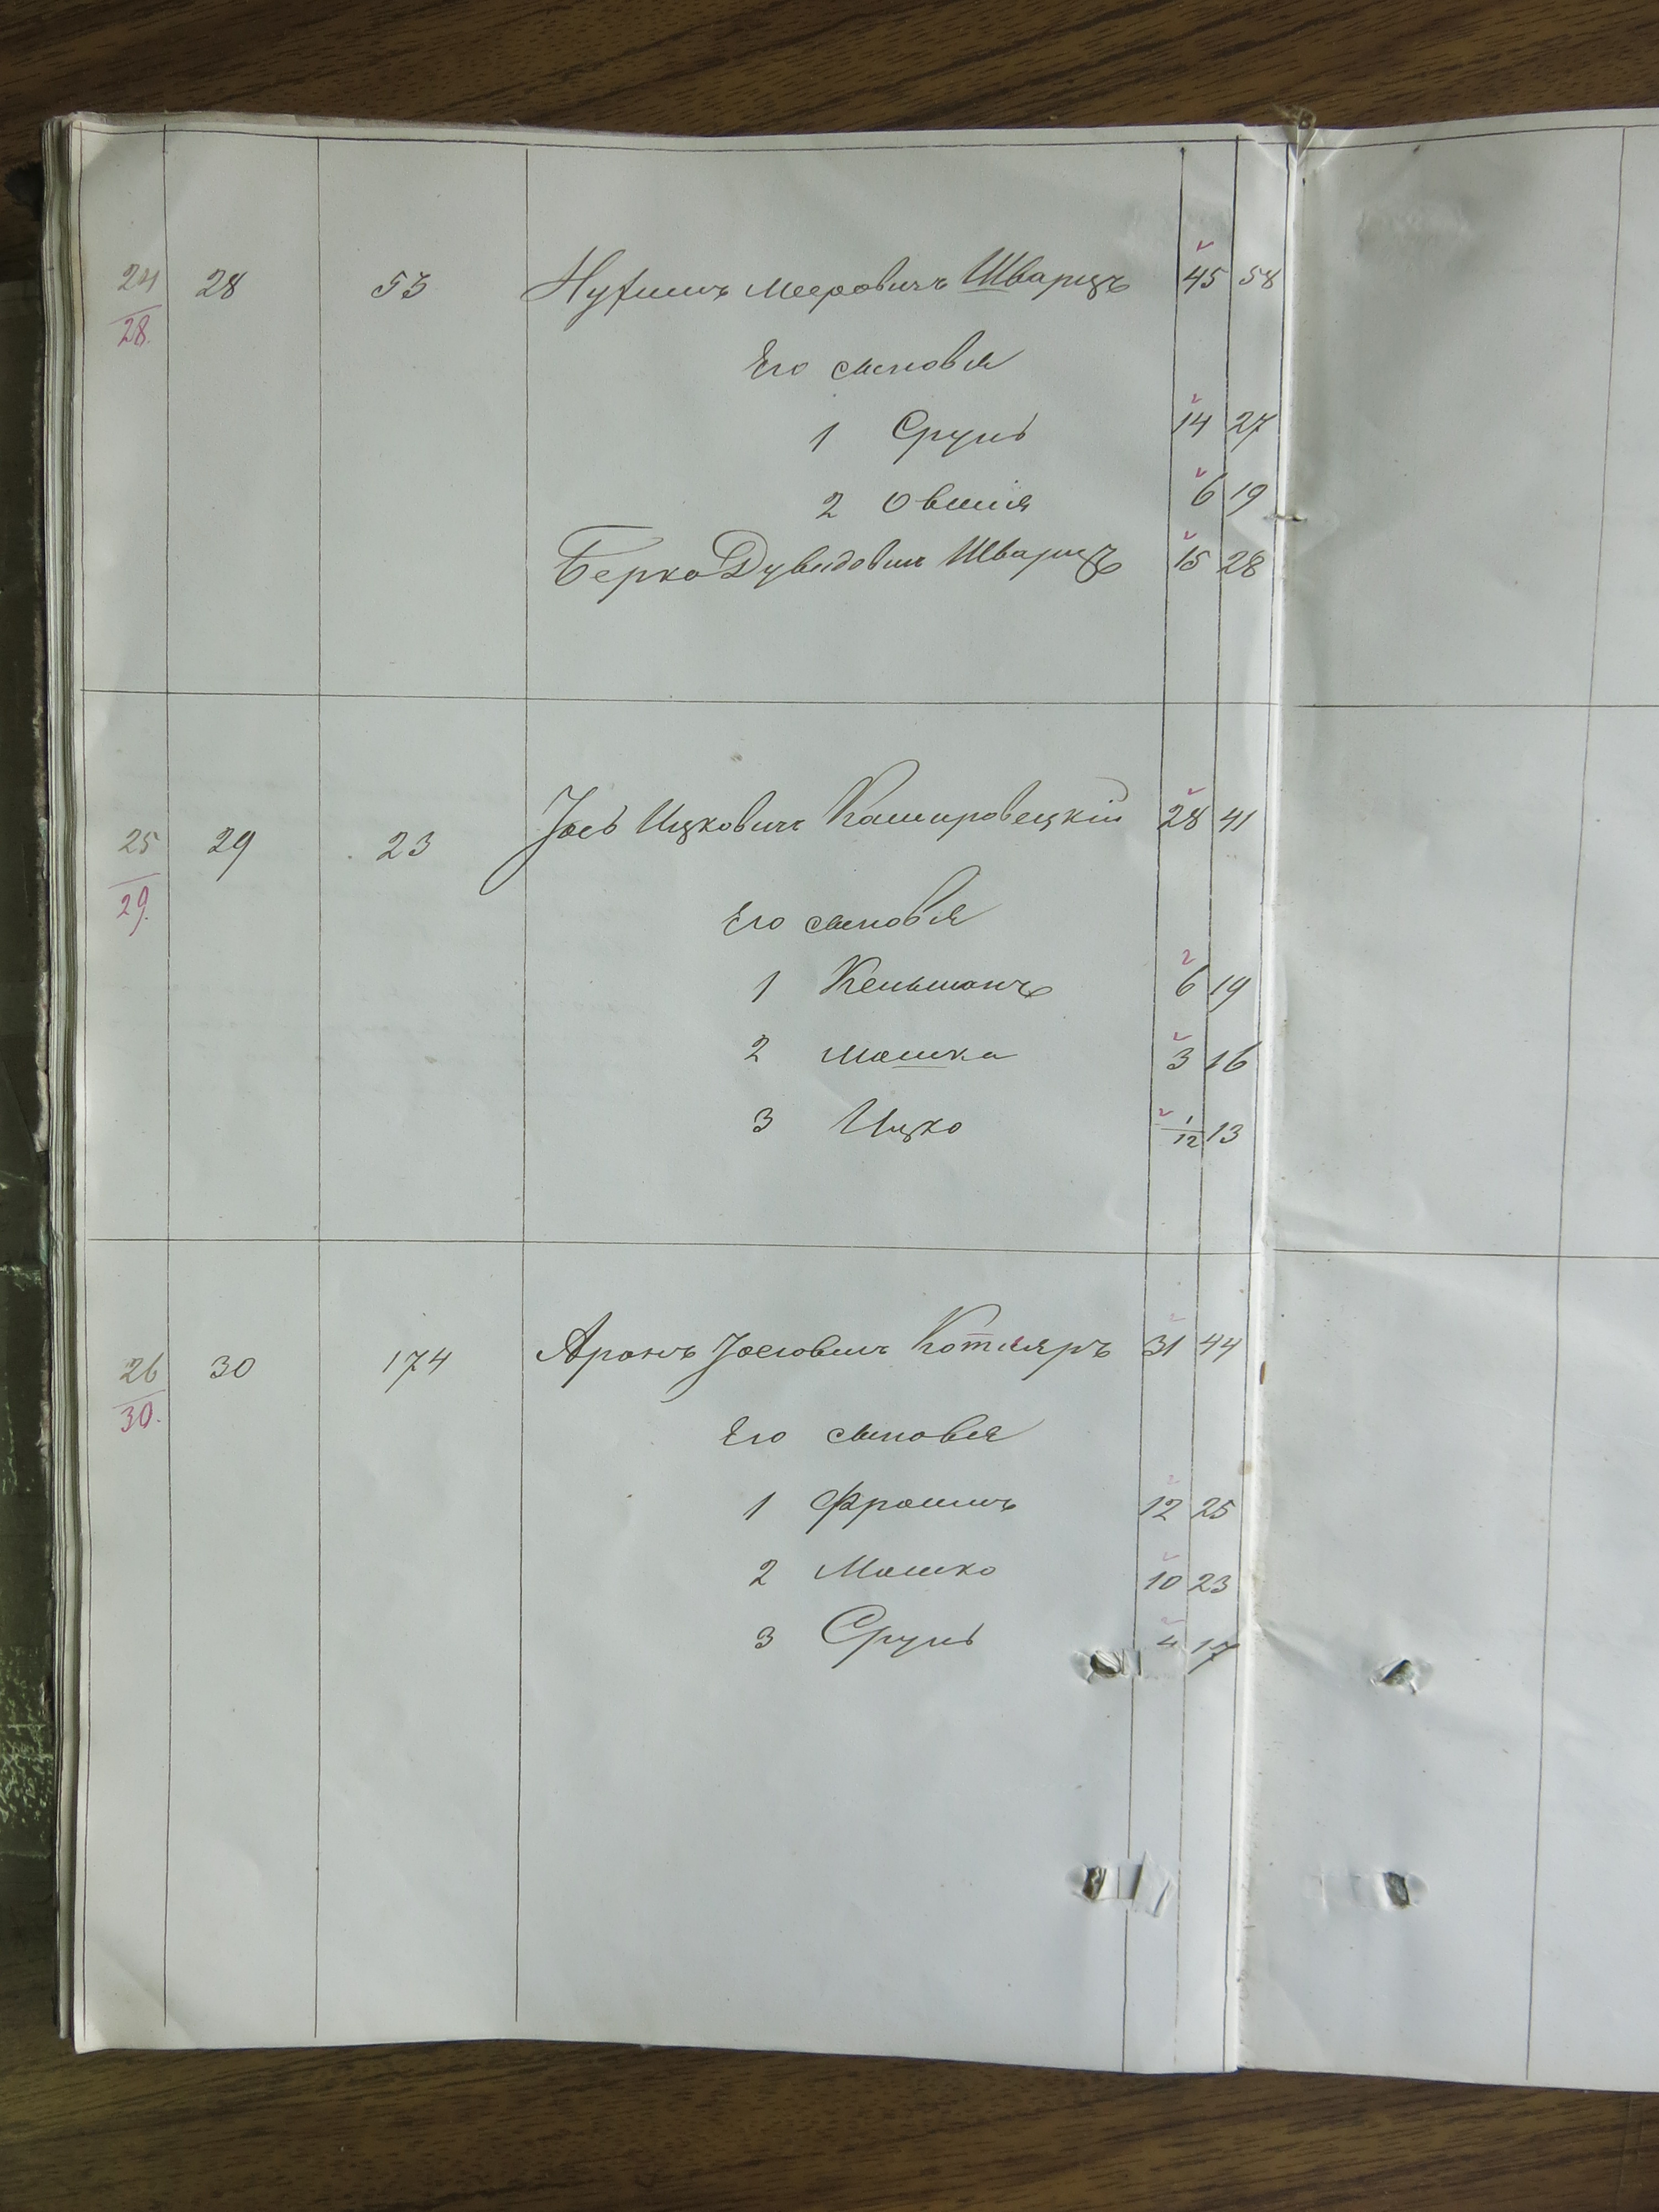 24 28 53 Нухимъ Мееровичъ Шварцъ 45 58
28.
Его сыновья
1 Сруль 14 27
2 Овшія 6 19
Берко Дувидовичъ Шварцъ 15 28
25 29 23 Іось Ицковичъ Кашировецкій 28 41
29.
Его сыновья
1 Кельманъ 6 19
2 Мошка 3 16
3 Ицко 1/12 13
26 30 174 Аронъ Іосіовичъ Котляръ 31 44
30.
Его сыновья
1 Фроимъ 12 25
2 Мошко 10 23
3 Сруль 4 17